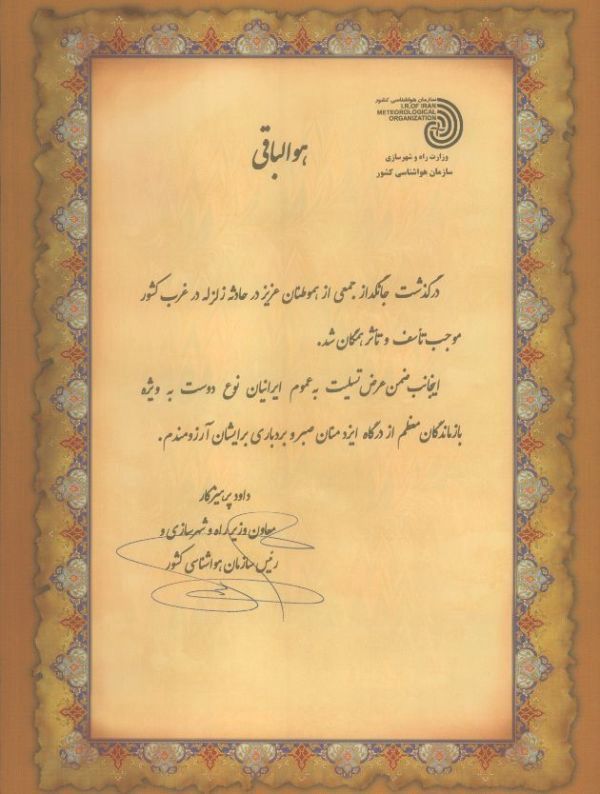 سازمان هواشناسی کشور
I.R.OF IRAN
METEOROLOGICAL
ORGANIZATION
وزارت راه و شهرسازی
سازمان هواشناسی کشور
هوالباقی
درگذشت جانگداز جمعی از هموطنان عزیز در حادثه زلزله در غرب کشور
موجب تأسف و تأثر همگان شد.
اینجانب ضمن عرض تسلیت به عموم ایرانیان نوع دوست به ویژه
بازماندگان معظم از درگاه ایزد منان صبر و بردباری برایشان آرزومندم.
داود پرهیزکار
معاون وزیر راه و شهرسازی و
رئیس سازمان هواشناسی کشور